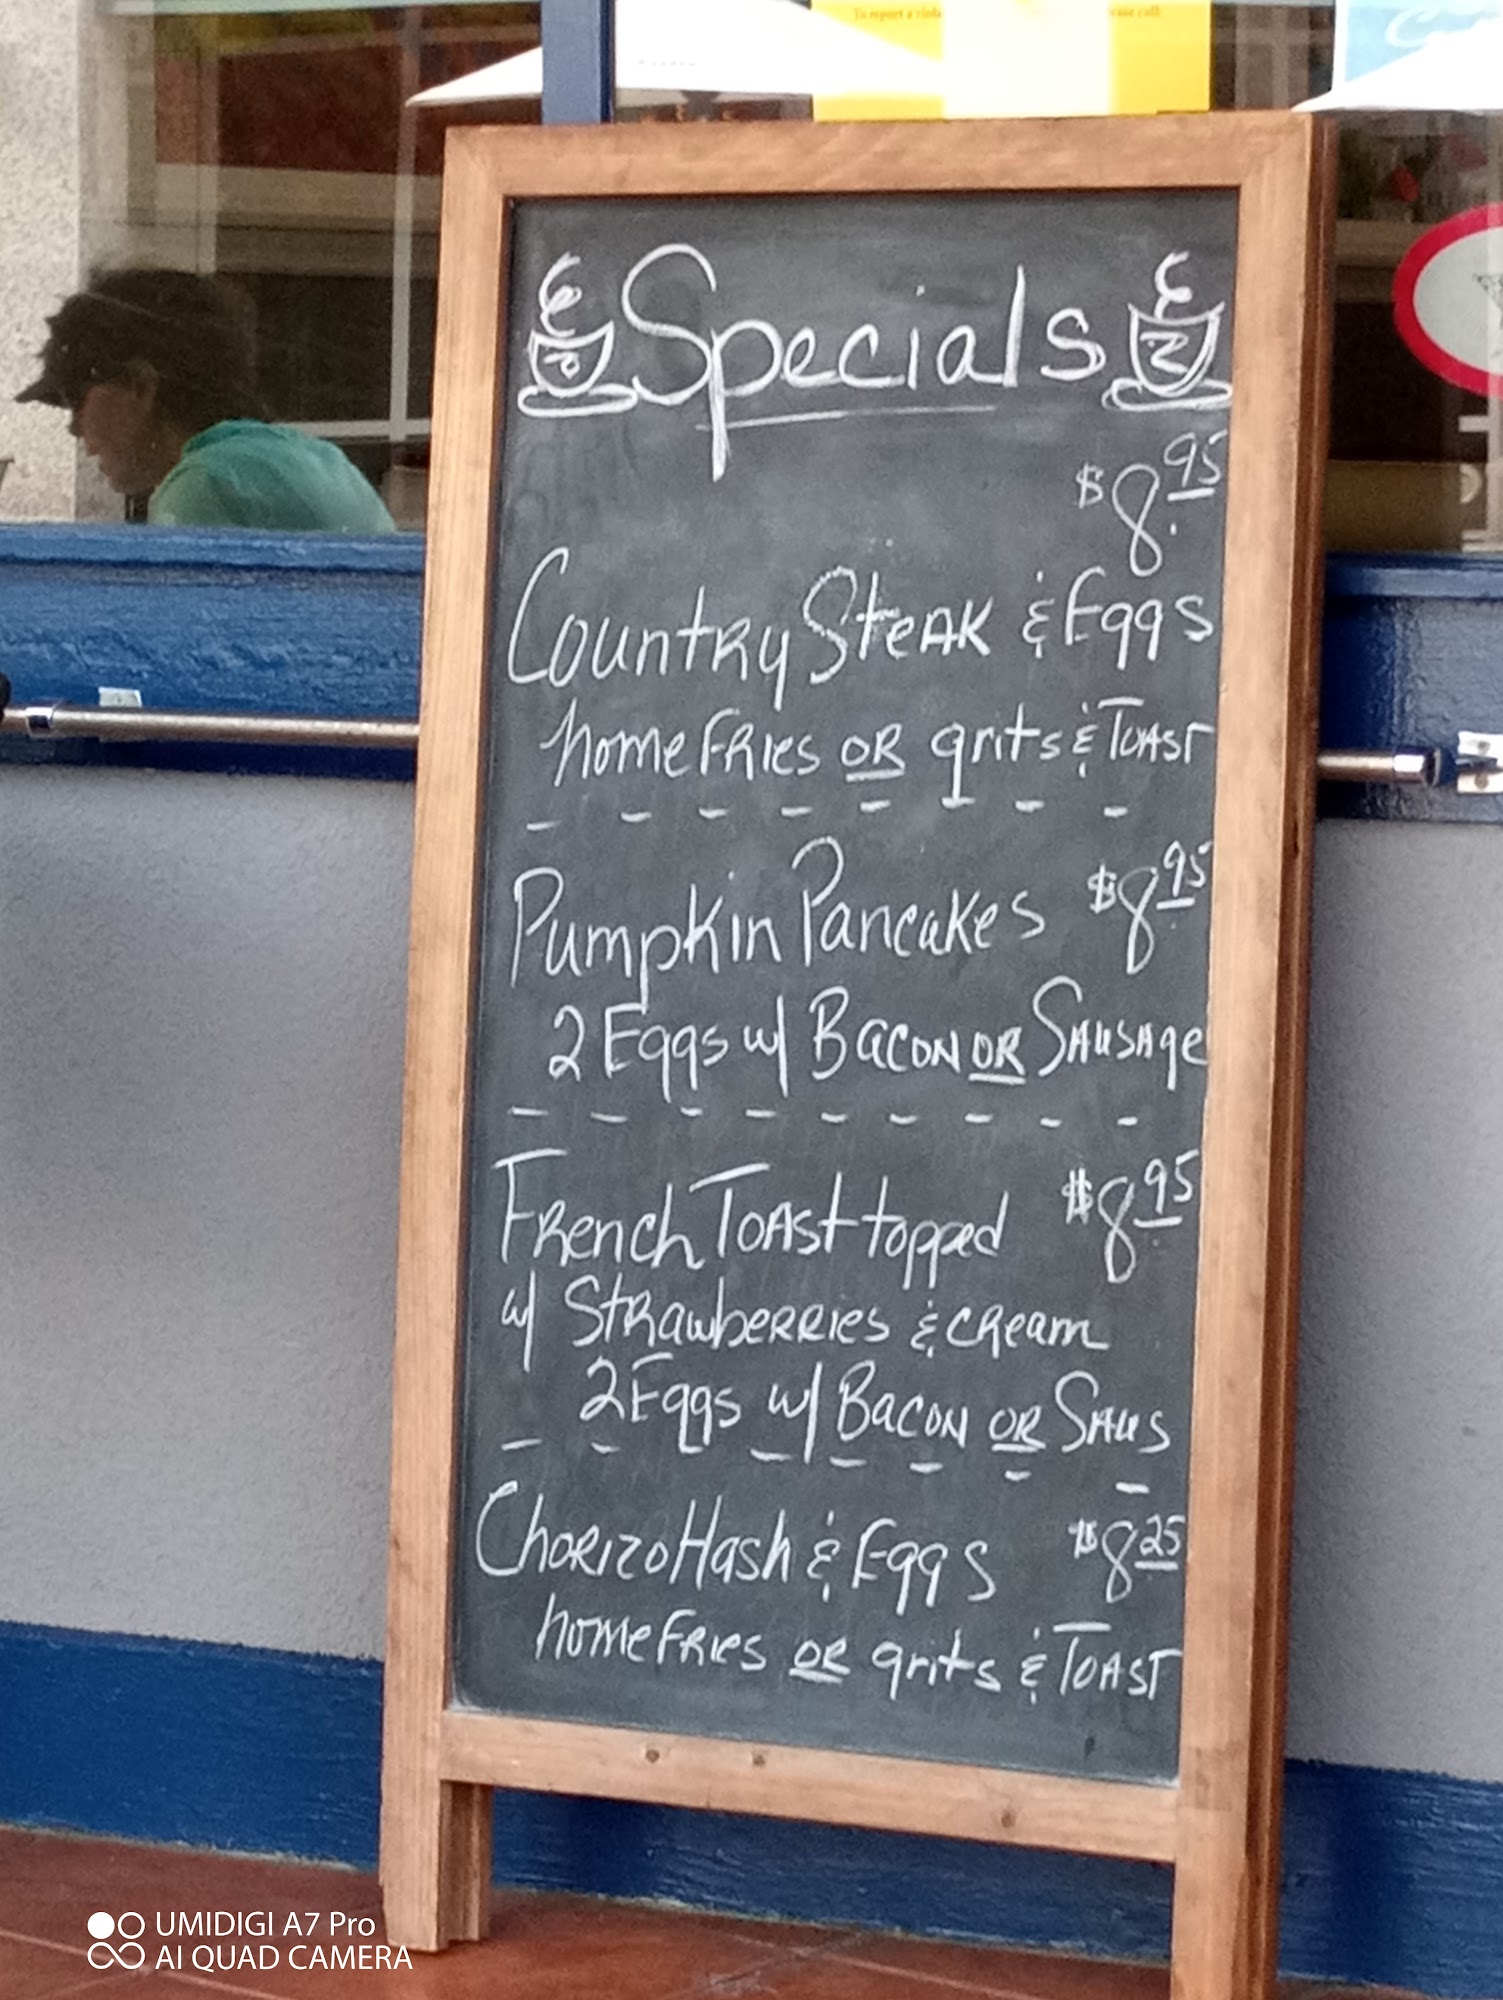 To report a viola
ease call:
Specials
$8.95
Country Steak & Eggs
home fries or grits & Toast
Pumpkin Pancakes $8.95
2 Eggs w/ Bacon or Sausage
French Toast topped $8.95
w/ Strawberries & cream
2 Eggs w/ Bacon or Saus
Chorizo Hash & Eggs $8.25
home fries or grits & Toast
UMIDIGI A7 Pro
AI QUAD CAMERA